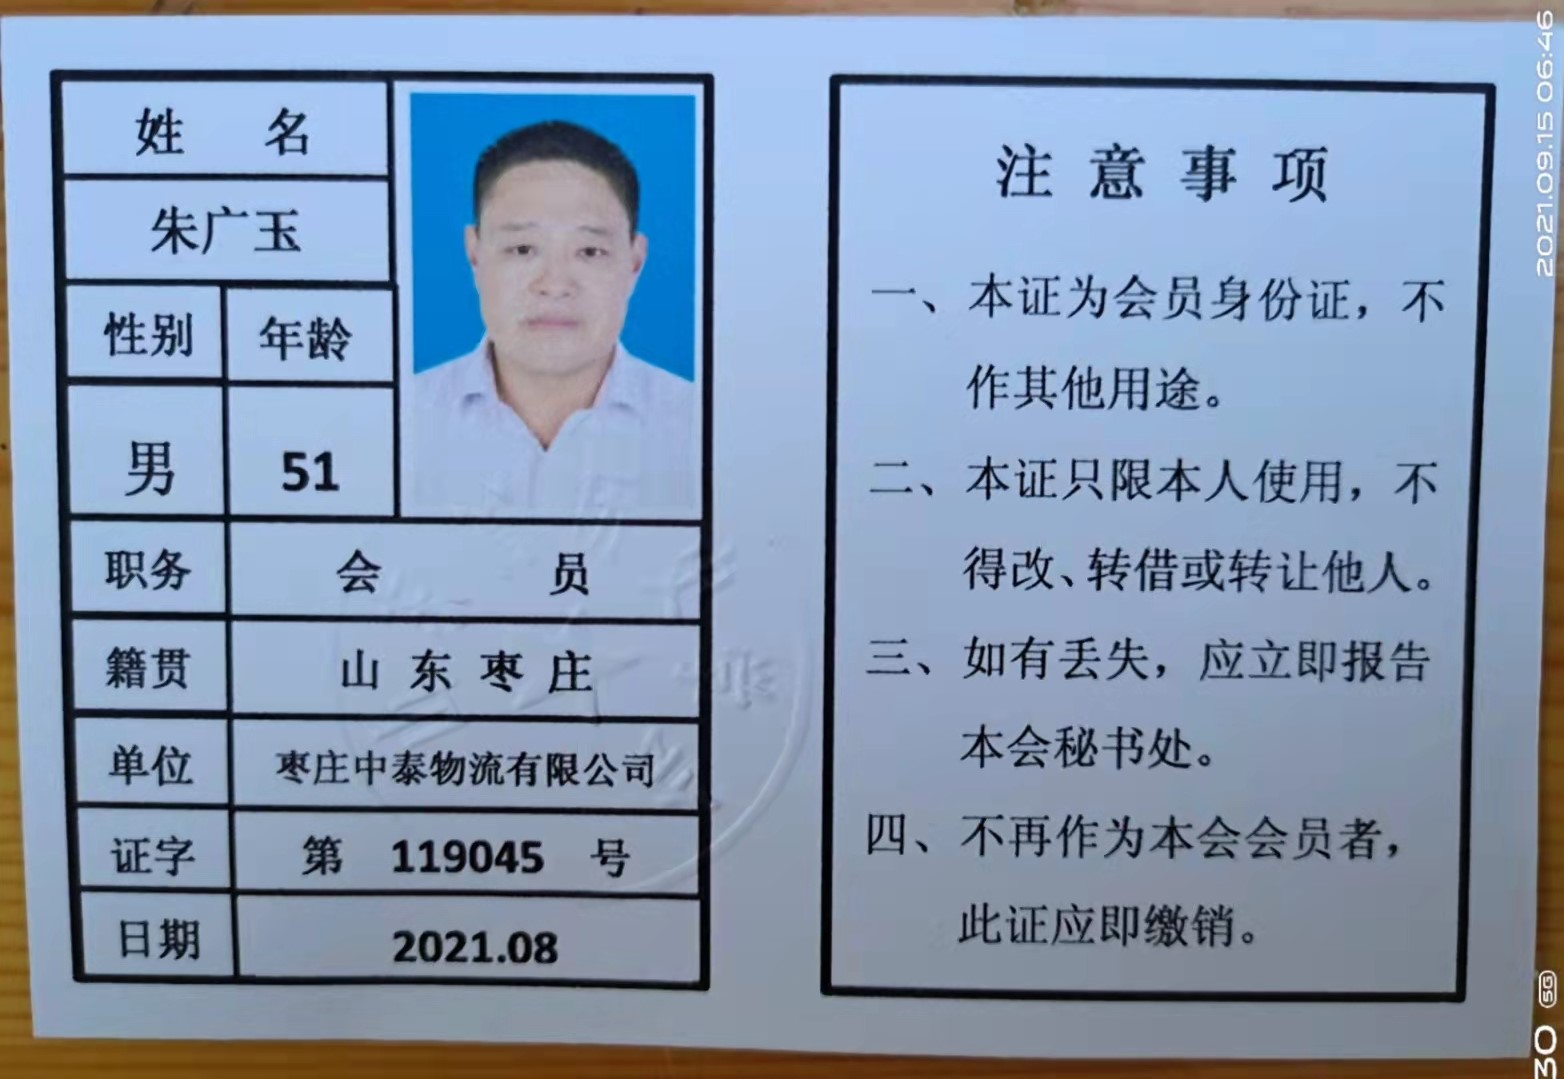 姓 名
朱广玉
性别 年龄
男 51
职务 会 员
籍贯 山东枣庄
单位 枣庄中泰物流有限公司
证字 第 119045 号
日期 2021.08
注意事项
一、本证为会员身份证，不
作其他用途。
二、本证只限本人使用，不
得改、转借或转让他人。
三、如有丢失，应立即报告
本会秘书处。
四、不再作为本会会员者，
此证应即缴销。
2021.09.15 06:46
30 5G